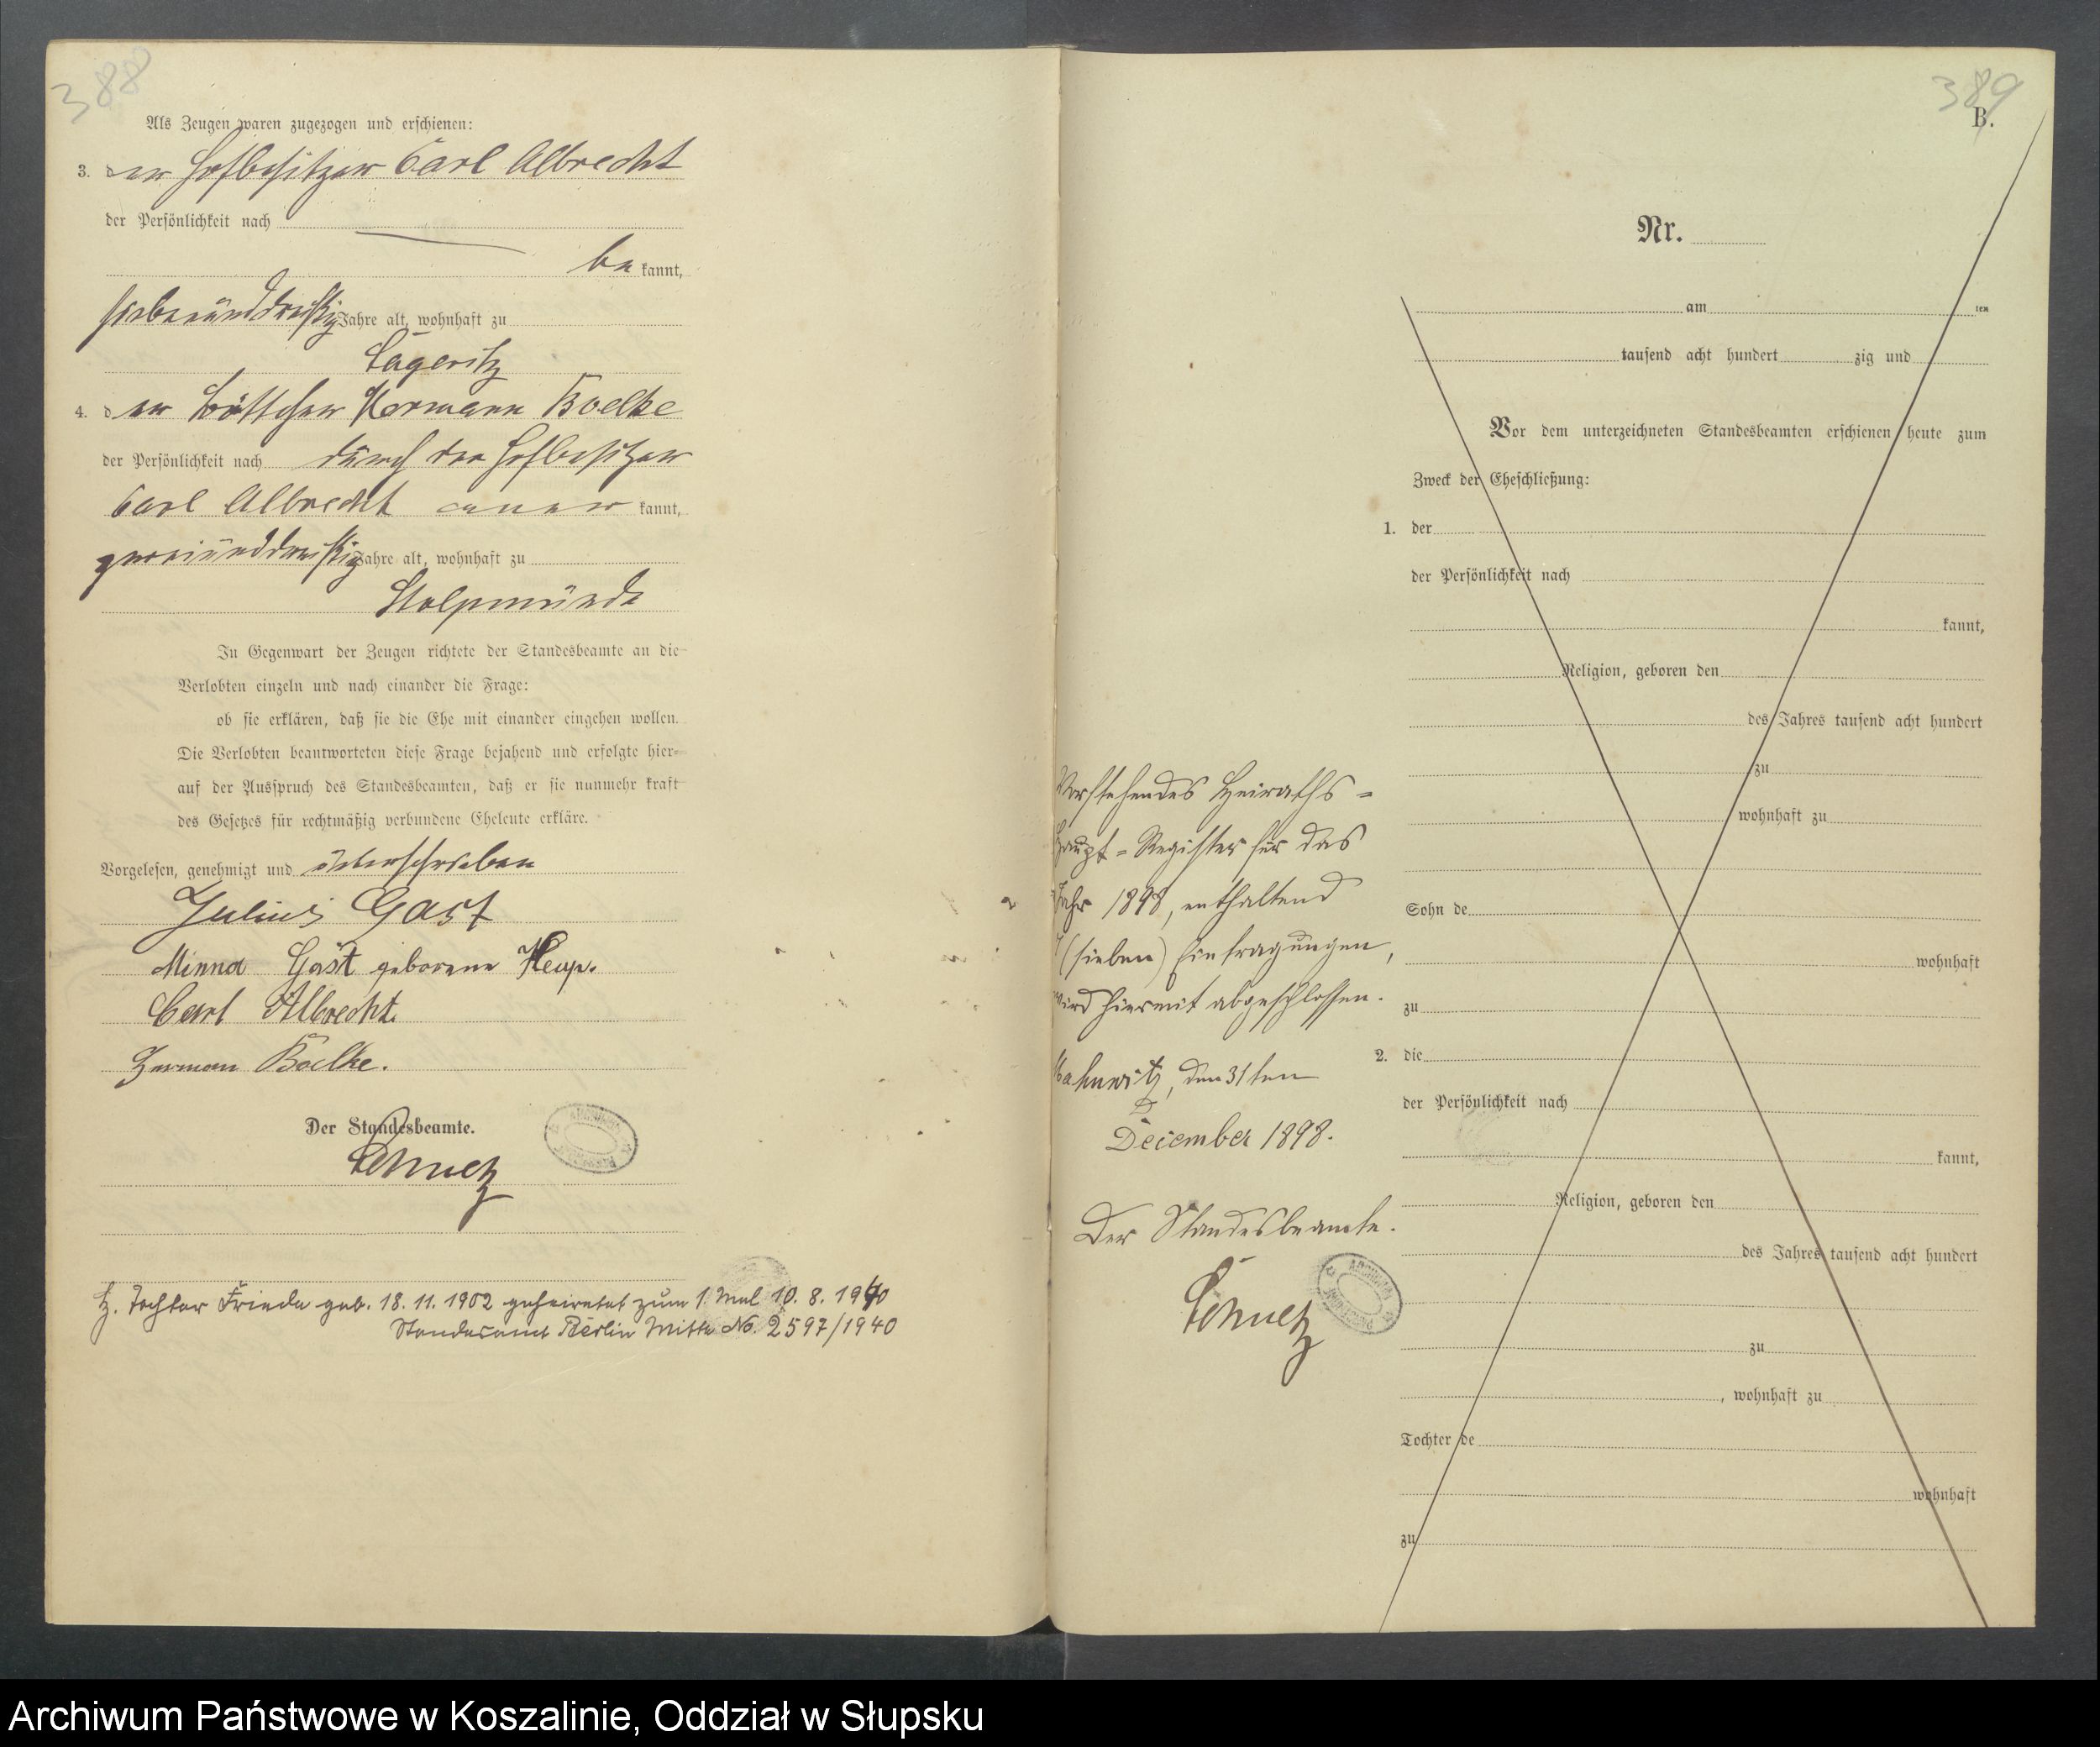 388
Als Zeugen waren zugezogen und erschienen:
3. der Hofbesitzer Carl Albrecht
der Persönlichkeit nach
be kannt,
siebenunddreißig Jahre alt, wohnhaft zu
Lageritz
4. der Böttcher Hermann Boelke
der Persönlichkeit nach durch den Hofbesitzer
Carl Albrecht aner kannt,
zweiunddreißig Jahre alt, wohnhaft zu
Stolpmünde
In Gegenwart der Zeugen richtete der Standesbeamte an die
Verlobten einzeln und nach einander die Frage:
ob sie erklären, daß sie die Ehe mit einander eingehen wollen.
Die Verlobten beantworteten diese Frage bejahend und erfolgte hier-
auf der Ausspruch des Standesbeamten, daß er sie nunmehr kraft
des Gesetzes für rechtmäßig verbundene Eheleute erkläre.
Vorgelesen, genehmigt und unterschrieben
Julius Gast
Minna Gast geborene Heup.
Carl Albrecht.
Herman Boelke.
Der Standesbeamte.
Schuetz
Tochter Frieda geb. 18. 11. 1902 geheiratet zum 1. Mal 10. 8. 1940
Standesamt Berlin Mitte No. 2597/1940
389
B.
Nr.
am ten
tausend acht hundert zig und
Vor dem unterzeichneten Standesbeamten erschienen heute zum
Zweck der Eheschließung:
1. der
der Persönlichkeit nach
kannt,
Religion, geboren den
des Jahres tausend acht hundert
zu
wohnhaft zu
Sohn de
wohnhaft
zu
2. die
der Persönlichkeit nach
kannt,
Religion, geboren den
des Jahres tausend acht hundert
zu
, wohnhaft zu
Tochter de
wohnhaft
zu
Vorstehendes Heiraths-
Haupt-Register für das
Jahr 1898, enthaltend
7 (sieben) Eintragungen,
wird hiermit abgeschlossen.
den 31ten
December 1898.
Der Standesbeamte.
Schuetz
Archiwum Państwowe w Koszalinie, Oddział w Słupsku